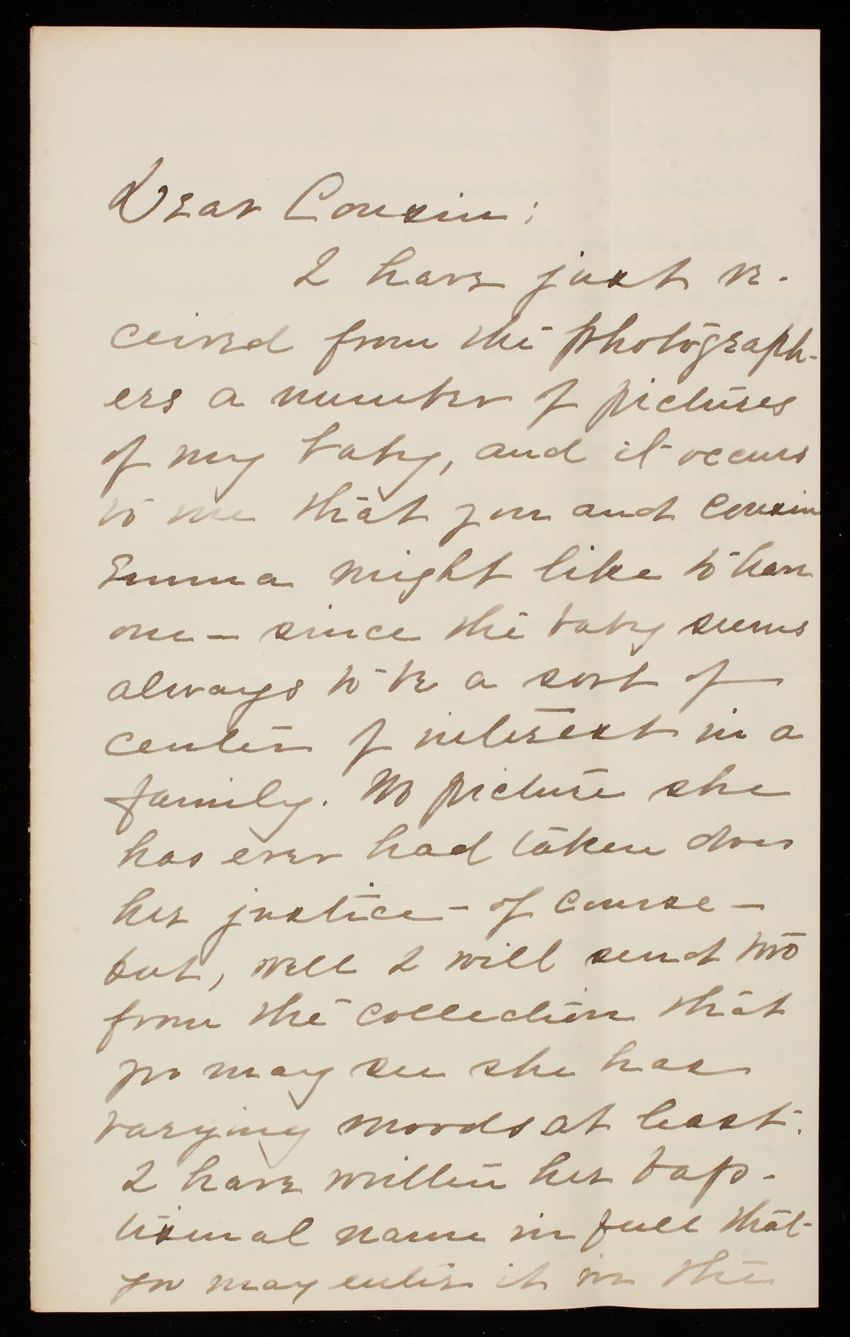 Dear Cousin;
I have just re-
ceived from the photograph-
ers a number of pictures
of my baby, and it occurs
to me that you and Cousin
Emma might like to have
one - since the baby seems
always to be a sort of
center of interest in a
family. No picture she
has ever had taken does
her justice - of course -
but, well I will send two
from the collection that
you may see she has
varying moods at least.
I have written her bap-
tismal name in full that
you may enter it in the